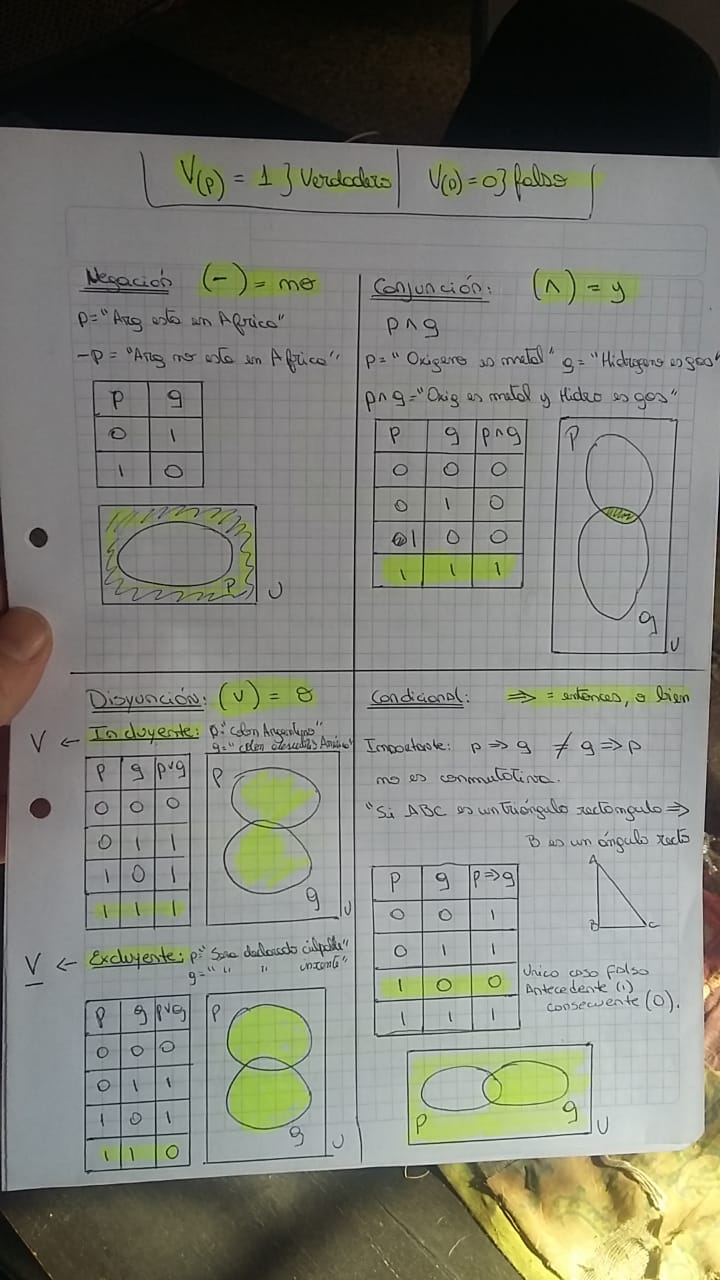 V(p) = 1 } Verdadero | V(p) = 0 } falso
Negación (-) = no
p="Arg esta en Africa"
-p = "Arg no esta en Africa"
p q
0 1
1 0
P
U
Conjunción: (∧) = y
p∧q
p= "Oxigeno es metal" q = "Hidrogeno es gas"
p∧q="Oxig es metal y Hidro es gas"
p q p∧q
0 0 0
0 1 0
1 0 0
1 1 1
P
q
U
Disyunción: (v) = o
V ← Incluyente: p="Colon Argentino"
q="Colon
p q pvq
0 0 0
0 1 1
1 0 1
1 1 1
P
q
U
V ← Excluyente: p="Sera declarado culpable"
q=" " "
p q pvq
0 0 0
0 1 1
1 0 1
1 1 0
P
q
U
Condicional: ⇒ = entonces, o bien
Importante: p ⇒ q ≠ q ⇒ p
no es conmutativa.
"Si ABC es un triángulo rectangulo ⇒
B es un ángulo recto
A
B C
p q p⇒q
0 0 1
0 1 1
1 0 0
1 1 1
Unico caso falso
Antecedente (1)
consecuente (0).
P
q
U